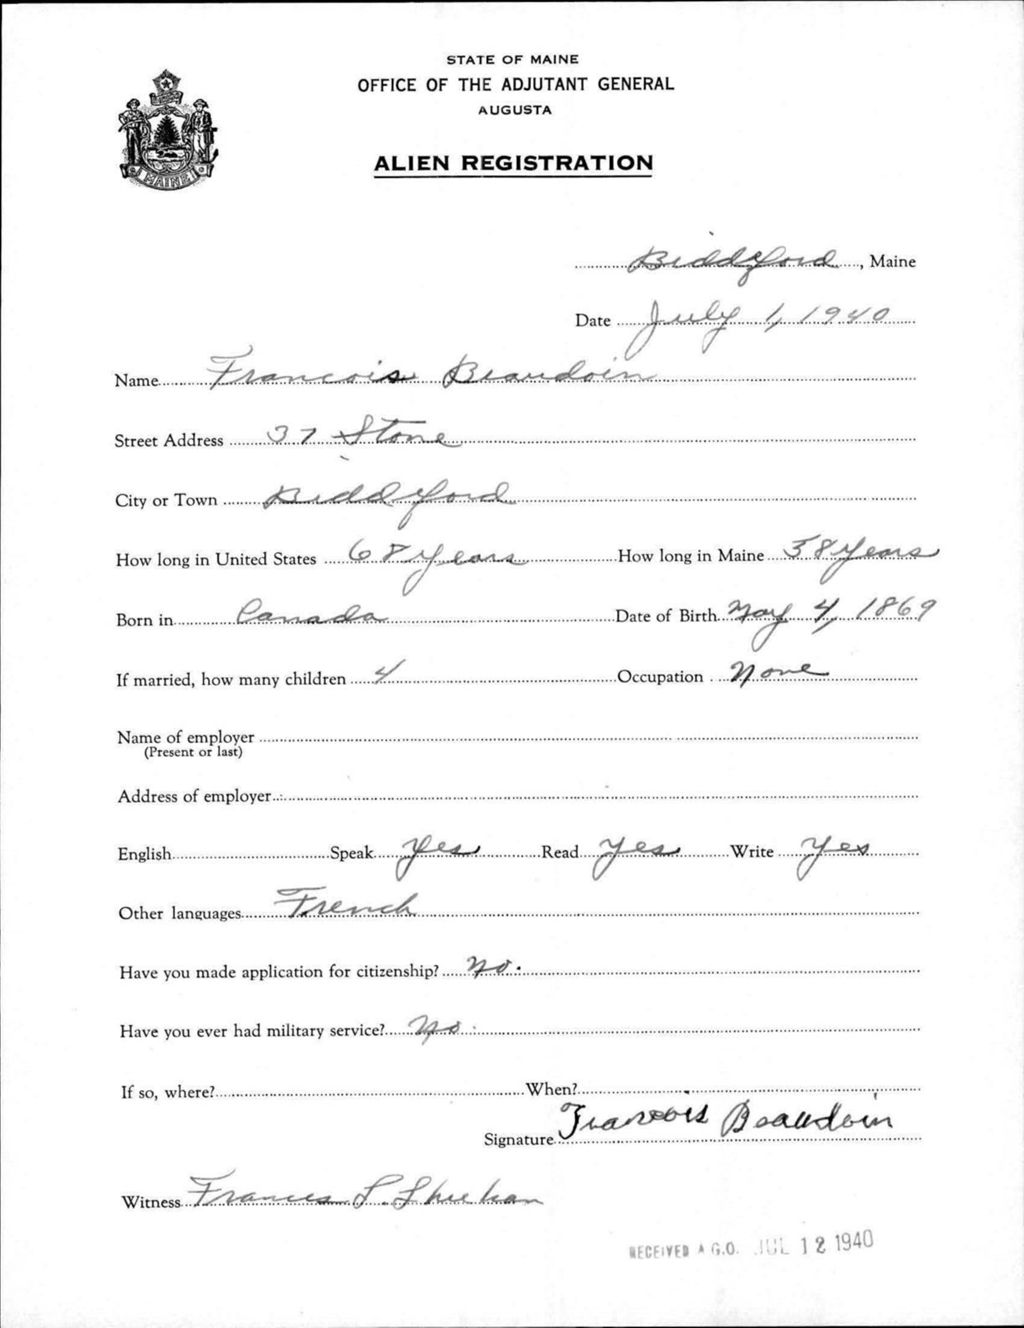 STATE OF MAINE
OFFICE OF THE ADJUTANT GENERAL
AUGUSTA
ALIEN REGISTRATION
MAINE
Biddeford, Maine
Date July 1, 1940
Name Francois Beaudoin
Street Address 37 Stone
City or Town Biddeford
How long in United States 68 years How long in Maine 58 years
Born in Canada Date of Birth May 4, 1869
If married, how many children 4 Occupation None
Name of employer
(Present or last)
Address of employer
English Speak Yes Read Yes Write Yes
Other languages French
Have you made application for citizenship? No.
Have you ever had military service? No.
If so, where? When?
Signature Francois Beaudoin
Witness Frances L. Sheehan
RECEIVED A.G.O. JUL 12 1940